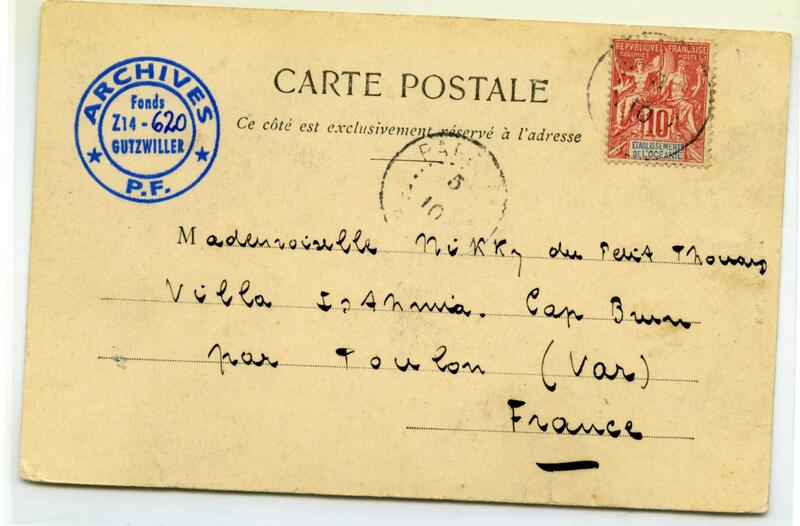 ARCHIVES
Fonds
Z14 - 620
GUTZWILLER
P.F.
CARTE POSTALE
Ce côté est exclusivement réservé à l'adresse
REPUBLIQUE FRANÇAISE
COLONIES POSTES
10
ETABLISSEMENTS
DE L'OCEANIE
5
10
10
Mademoiselle Nikky du Petit Thouars
Villa Isthmia. Cap Brun
par Toulon (Var)
France